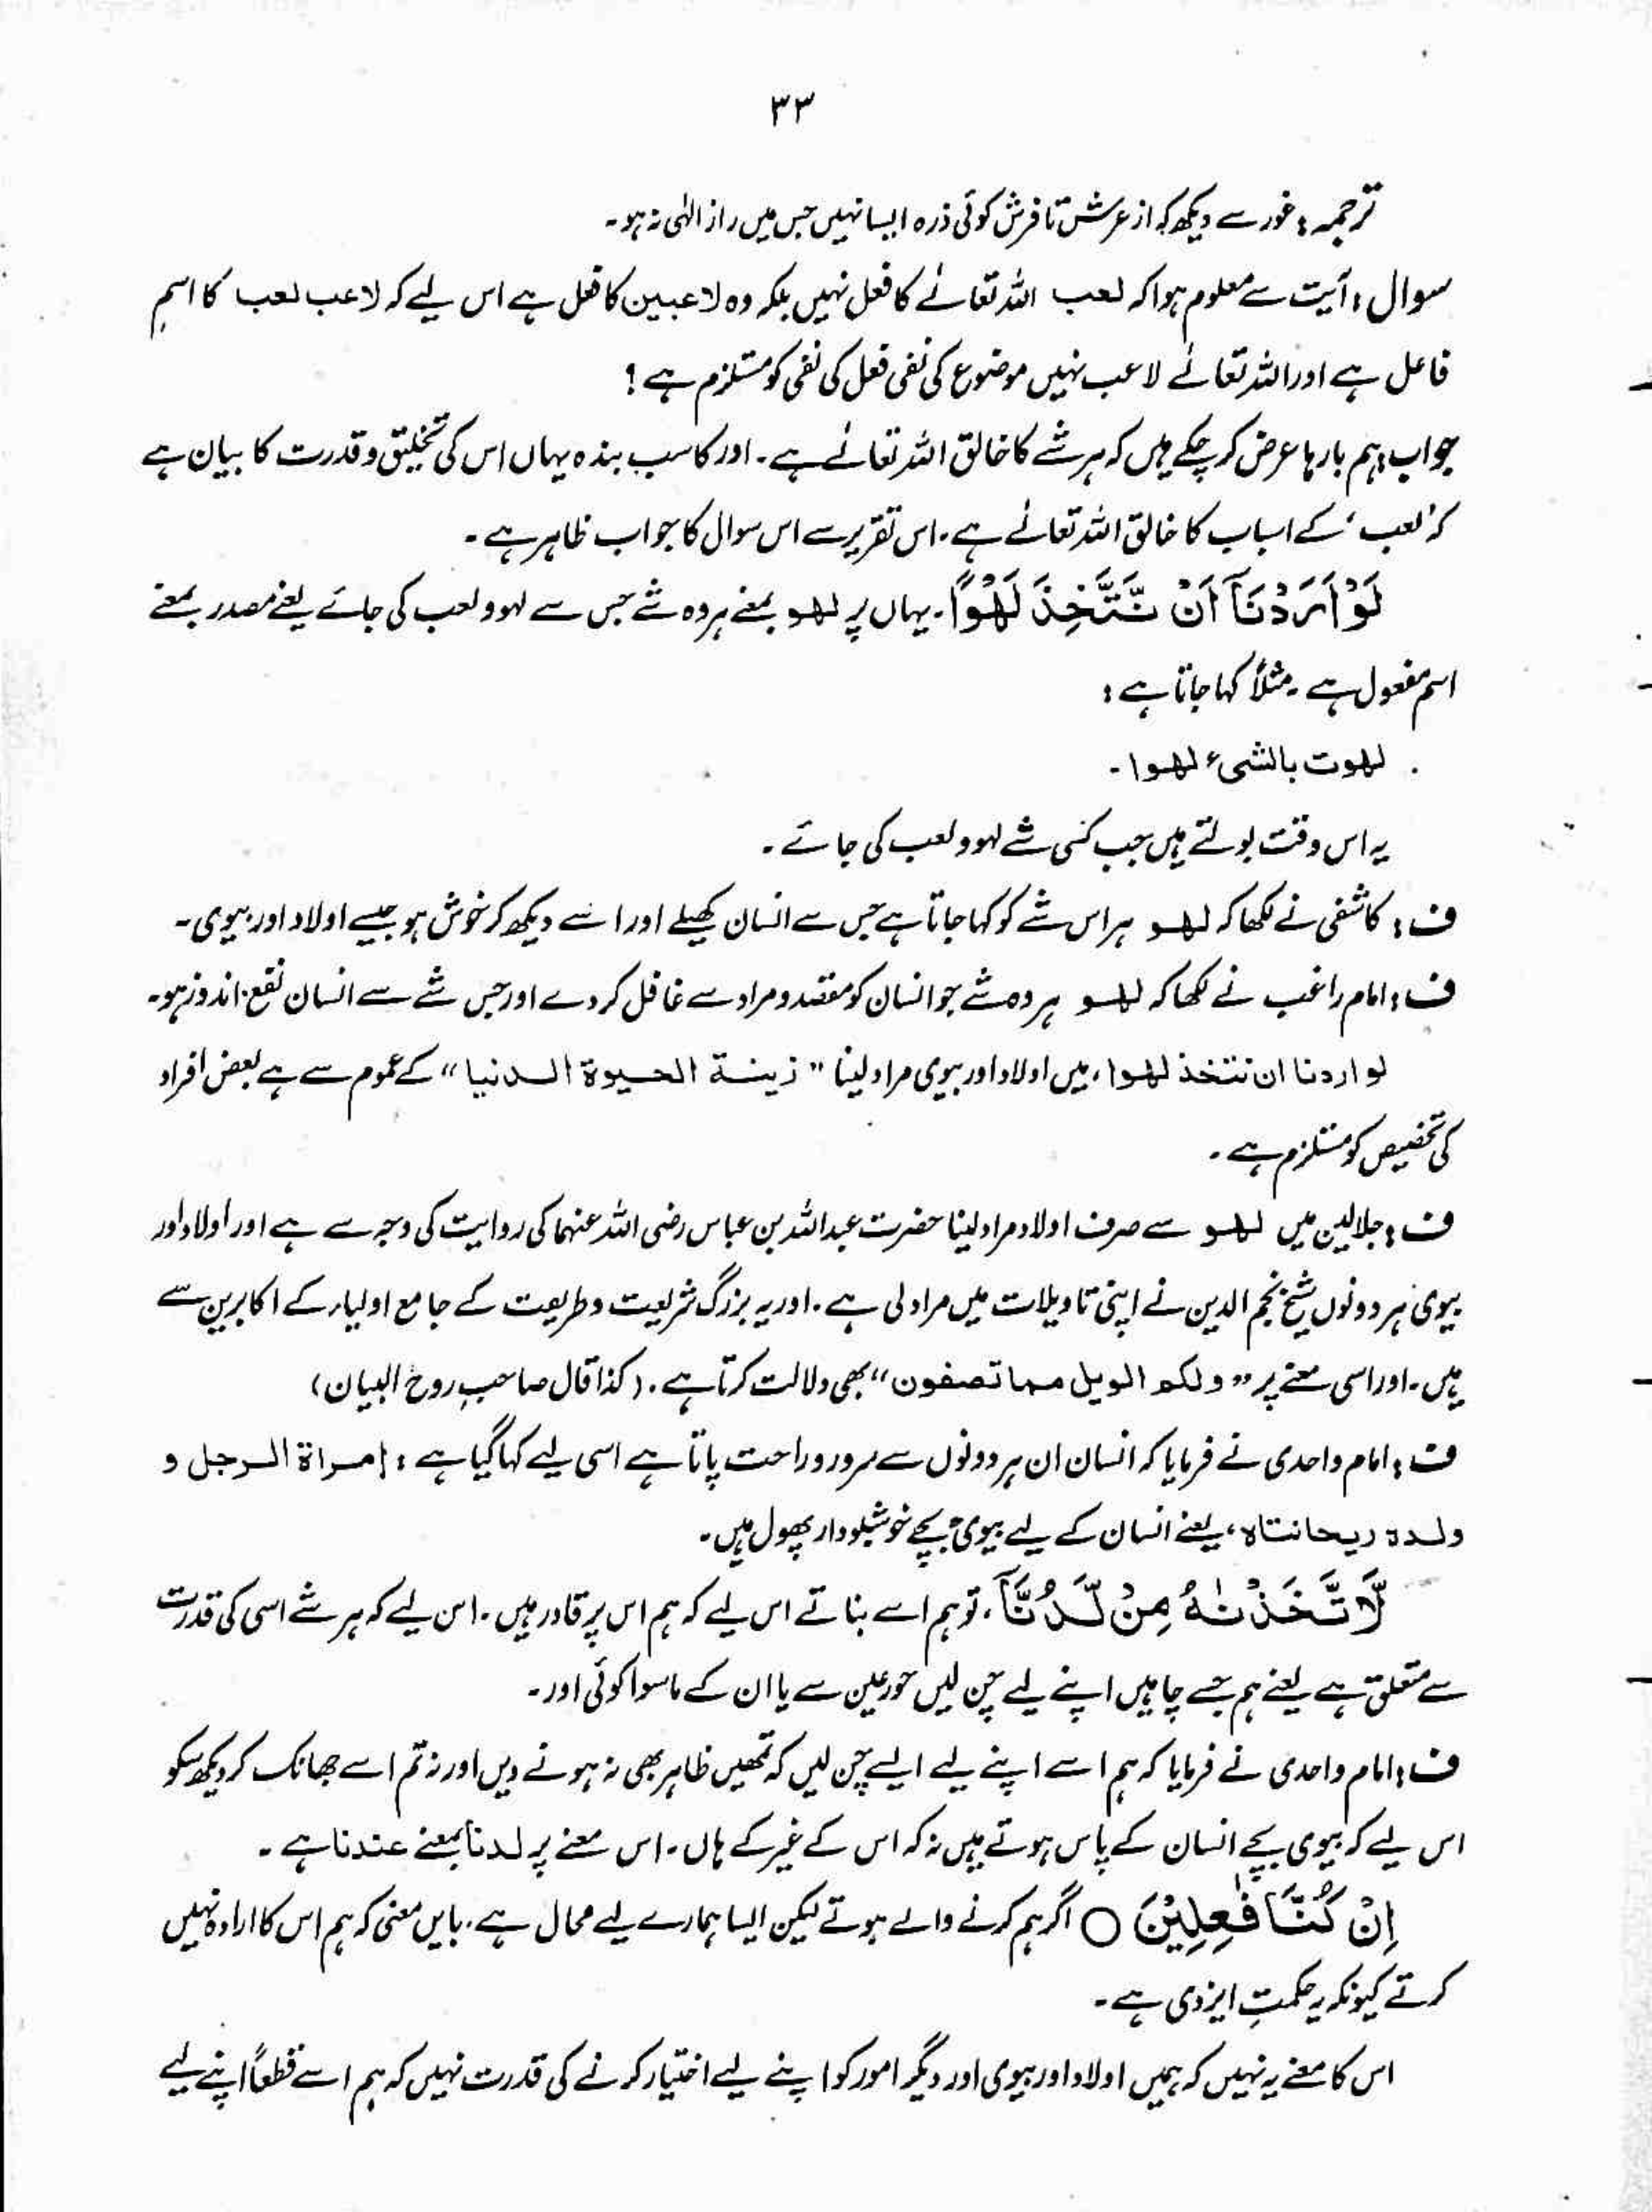 ۳۳
ترجمہ: غور سے دیکھ کہ از عرش تا فرش کوئی ذرہ ایسا نہیں جس میں راز الٰہی نہ ہو۔
سوال: آیت سے معلوم ہوا کہ لعب اللہ تعالےٰ کا فعل نہیں بلکہ وہ لاعبین کا فعل ہے اس لیے کہ لاعب لعب کا اسم
فاعل ہے اور اللہ تعالےٰ لاعب نہیں موضوع کی نفی فعل کی نفی کو مستلزم ہے؟
جواب: ہم بارہا عرض کر چکے ہیں کہ ہر شے کا خالق اللہ تعالےٰ ہے۔ اور کاسب بندہ یہاں اس کی تخلیق و قدرت کا بیان ہے
کہ 'لعب' کے اسباب کا خالق اللہ تعالےٰ ہے۔ اس تقریر سے اس سوال کا جواب ظاہر ہے۔
لَوْ اَرَدْنَآ اَنْ نَّتَّخِذَ لَهْوًا۔ یہاں پر لھو بمعنے ہر وہ شے جس سے لہو و لعب کی جائے یعنے مصدر بمعنے
اسم مفعول ہے۔ مثلاً کہا جاتا ہے:
لھوت بالشیء لھوا۔
یہ اس وقت بولتے ہیں جب کسی شے لہو و لعب کی جائے۔
ف: کاشفی نے لکھا کہ لھو ہر اس شے کو کہا جاتا ہے جس سے انسان کھیلے اور اسے دیکھ کر خوش ہو جیسے اولاد اور بیوی۔
ف: امام راغب نے لکھا کہ لھو ہر وہ شے جو انسان کو مقصد و مراد سے غافل کر دے اور جس شے سے انسان نفع اندوز ہو۔
لو اردنا ان نتخذ لھوا، میں اولاد اور بیوی مراد لینا "زینة الحیوة الدنیا" کے عموم سے ہے بعض افراد
کی تخصیص کو مستلزم ہے۔
ف: جلالین میں لھو سے صرف اولاد مراد لینا حضرت عبداللہ بن عباس رضی اللہ عنہما کی روایت کی وجہ سے ہے اور اولاد اور
بیوی ہر دونوں شیخ نجم الدین نے اپنی تاویلات میں مراد لی ہے۔ اور یہ بزرگ شریعت و طریقت کے جامع اولیاء کے اکابرین سے
ہیں۔ اور اسی معنے پر "ولکم الویل مما تصفون" بھی دلالت کرتا ہے۔ (کذا قال صاحبِ روح البیان)
ف: امام واحدی نے فرمایا کہ انسان ان ہر دونوں سے سرور و راحت پاتا ہے اسی لیے کہا گیا ہے: امراة الرجل و
ولدہ ریحانتاہ، یعنے انسان کے لیے بیوی بچے خوشبودار پھول ہیں۔
لَّاتَّخَذْنٰهُ مِنْ لَّدُنَّآ۔ تو ہم اسے بناتے اس لیے کہ ہم اس پر قادر ہیں۔ اس لیے کہ ہر شے اسی کی قدرت
سے متعلق ہے یعنے ہم جسے چاہیں اپنے لیے چن لیں حور عین سے یا ان کے ماسوا کوئی اور۔
ف: امام واحدی نے فرمایا کہ ہم اسے اپنے لیے ایسے چن لیں کہ تمھیں ظاہر بھی نہ ہونے دیں اور نہ تم اسے جھانک کر دیکھ سکو
اس لیے کہ بیوی بچے انسان کے پاس ہوتے ہیں نہ کہ اس کے غیر کے ہاں۔ اس معنے پر لدنا بمعنے عندنا ہے۔
اِنْ كُنَّا فٰعِلِيْنَ ○ اگر ہم کرنے والے ہوتے لیکن ایسا ہمارے لیے محال ہے۔ بایں معنی کہ ہم اس کا ارادہ نہیں
کرتے کیونکہ یہ حکمتِ ایزدی ہے۔
اس کا معنے یہ نہیں کہ ہمیں اولاد اور بیوی اور دیگر امور کو اپنے لیے اختیار کرنے کی قدرت نہیں کہ ہم اسے قطعاً اپنے لیے